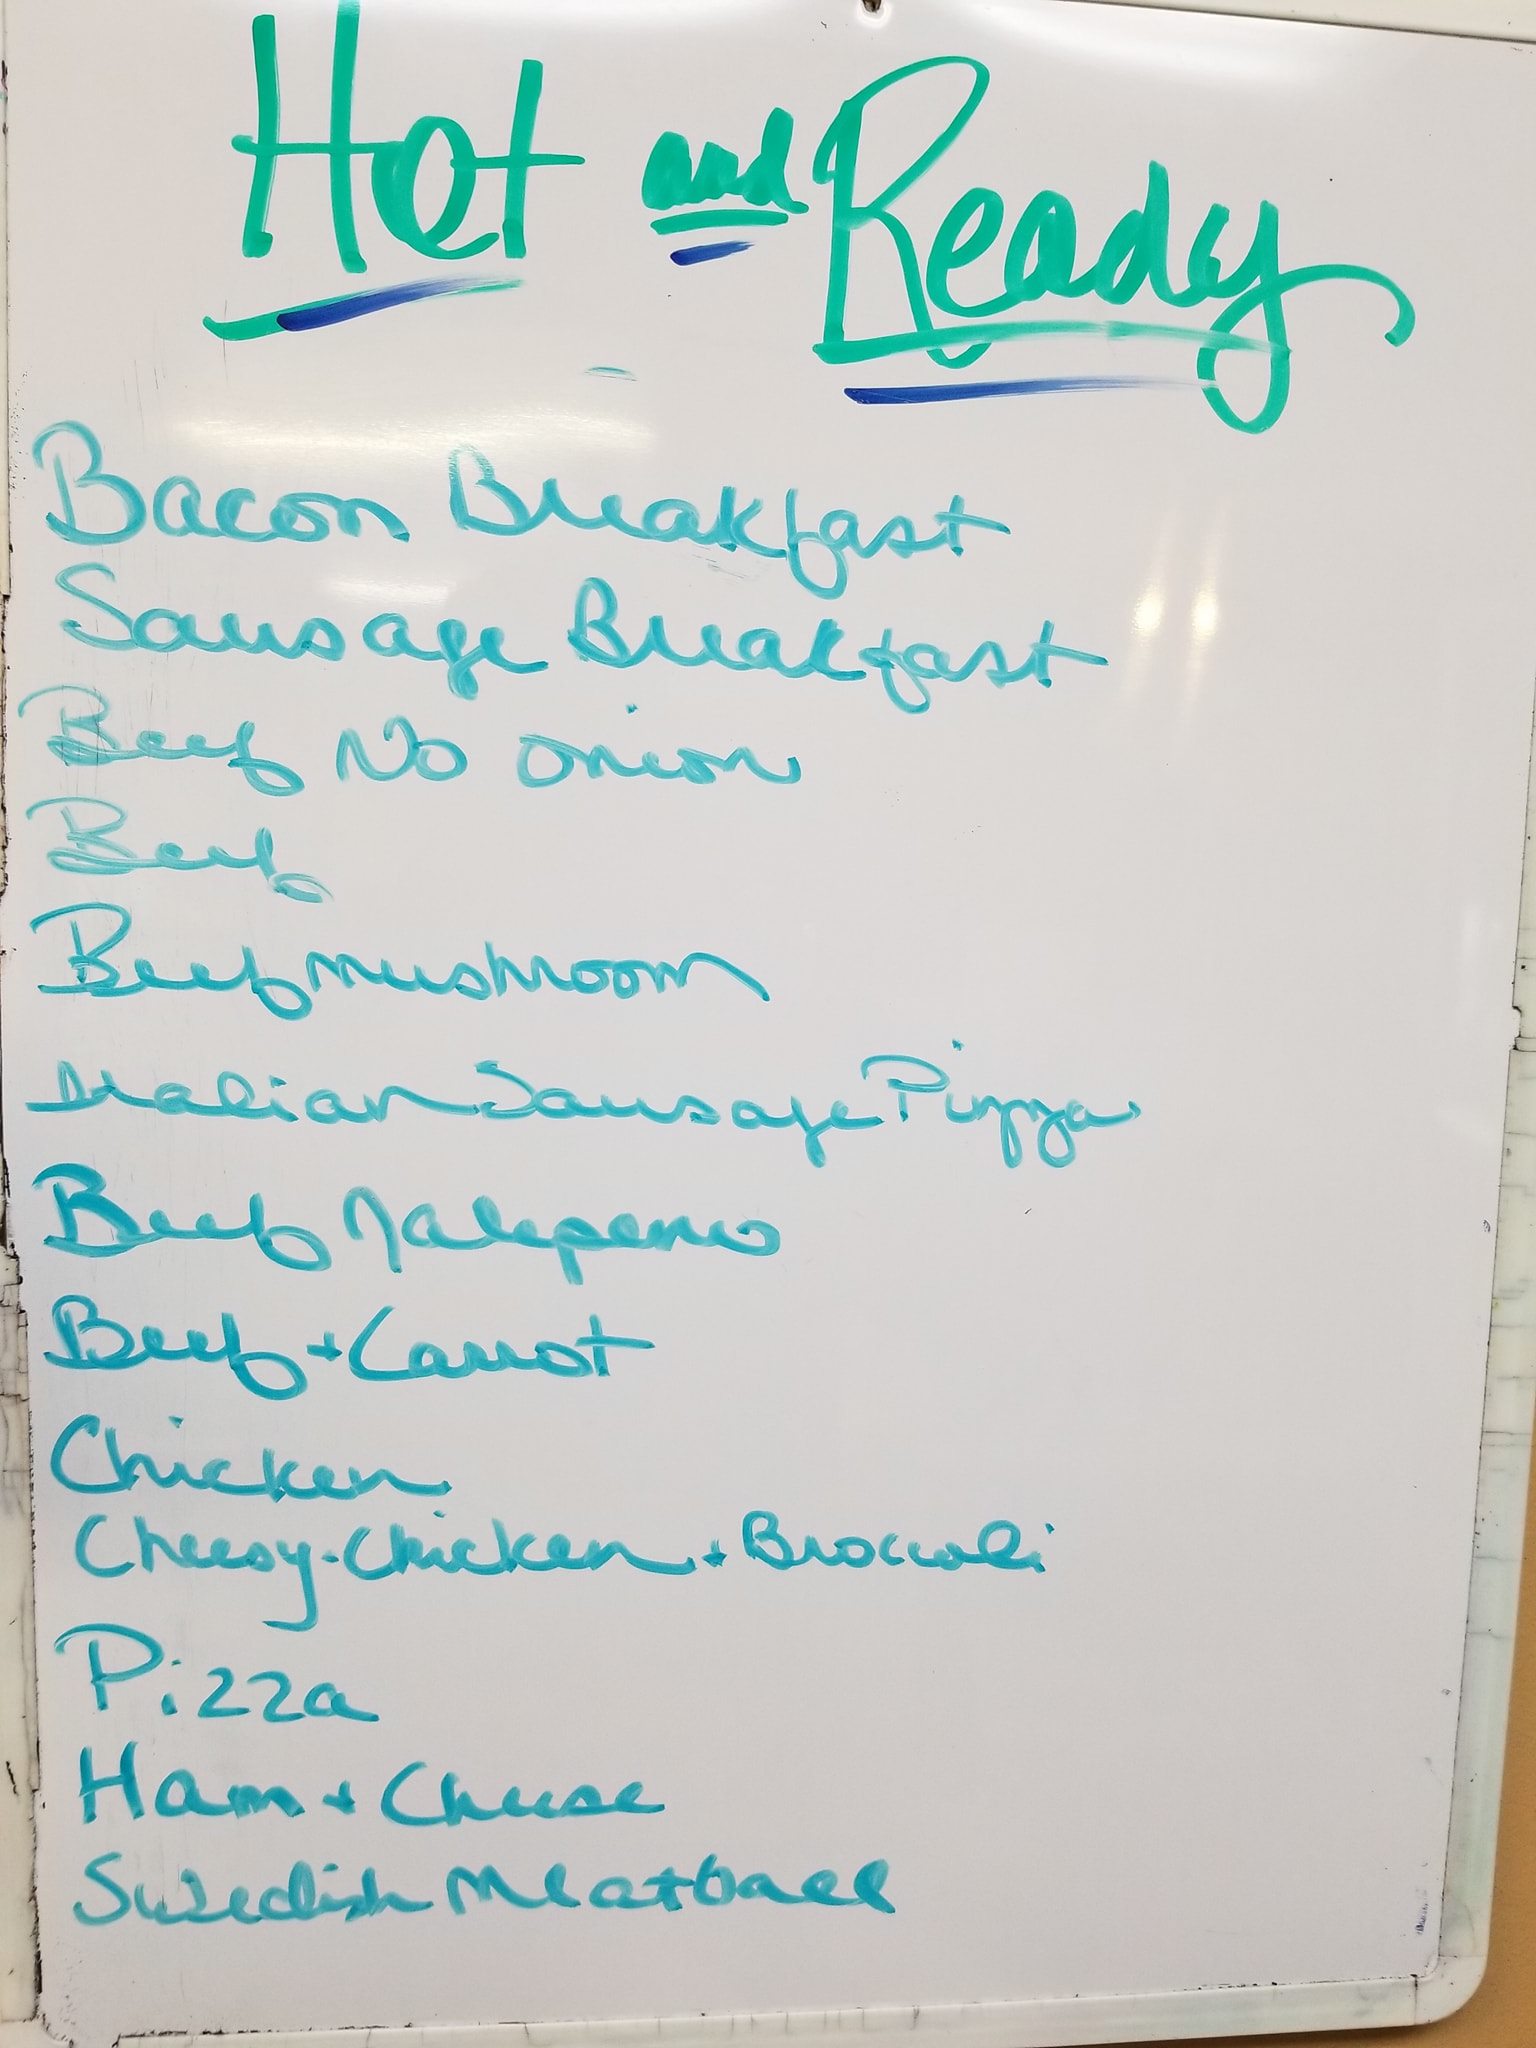 Hot and Ready
Bacon Breakfast
Sausage Breakfast
Beef No onion
Beef
Beef mushroom
Italian Sausage Pizza
Beef Jalepeno
Beef + Carrot
Chicken
Cheesy-Chicken + Broccoli
Pizza
Ham + Cheese
Swedish Meatball